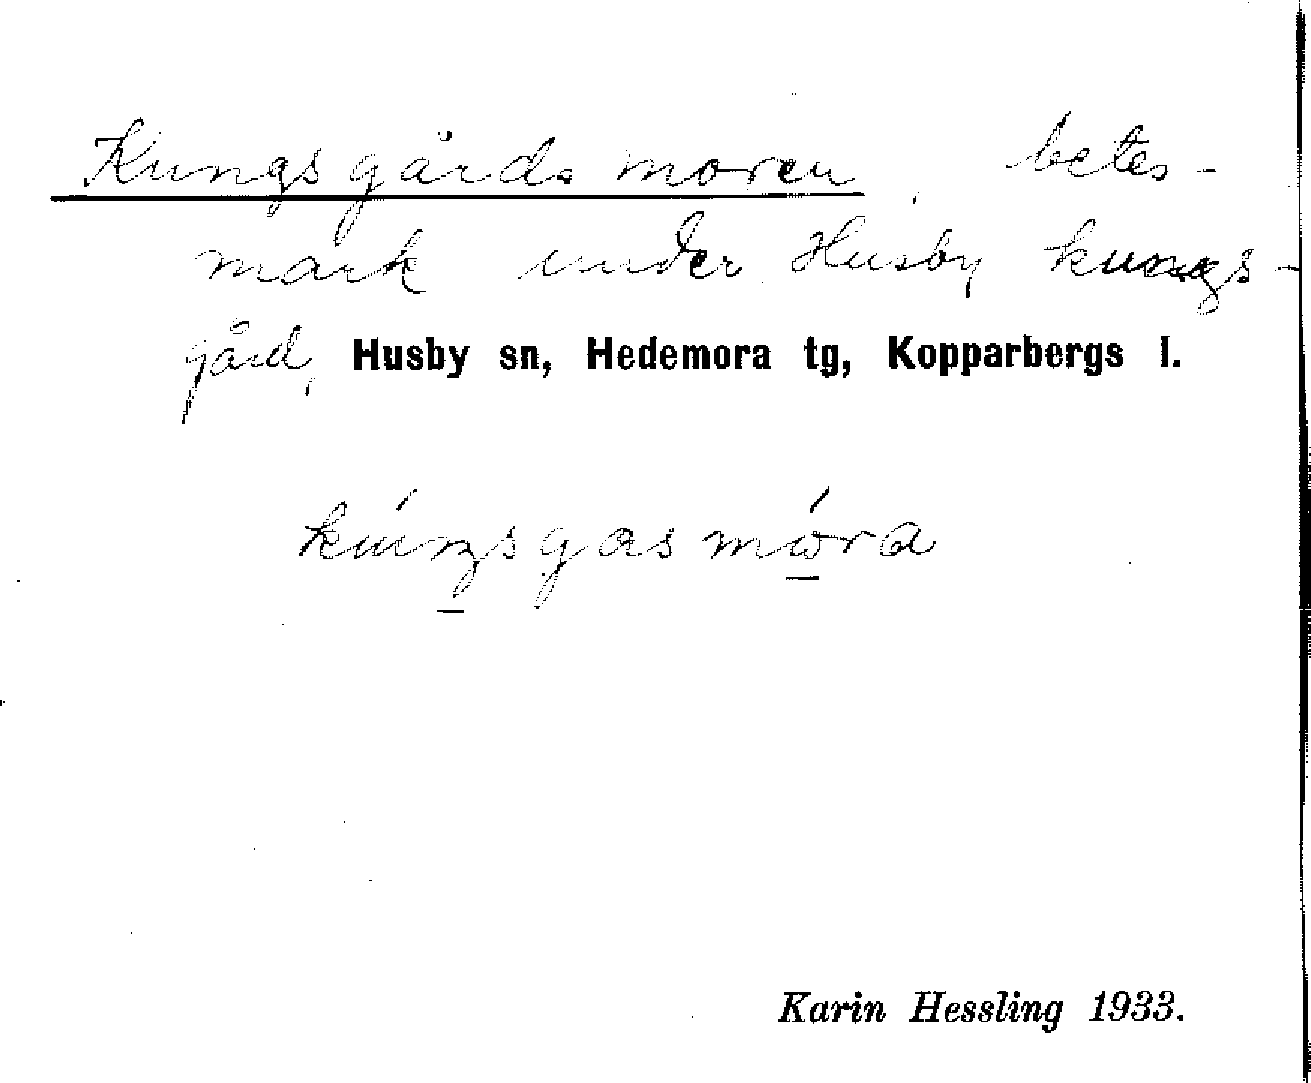 Kungsgårdsmoren, betes-
mark under Husby kungs-
gård, Husby sn, Hedemora tg, Kopparbergs l.
kúŋsgasmóra
Karin Hessling 1933.